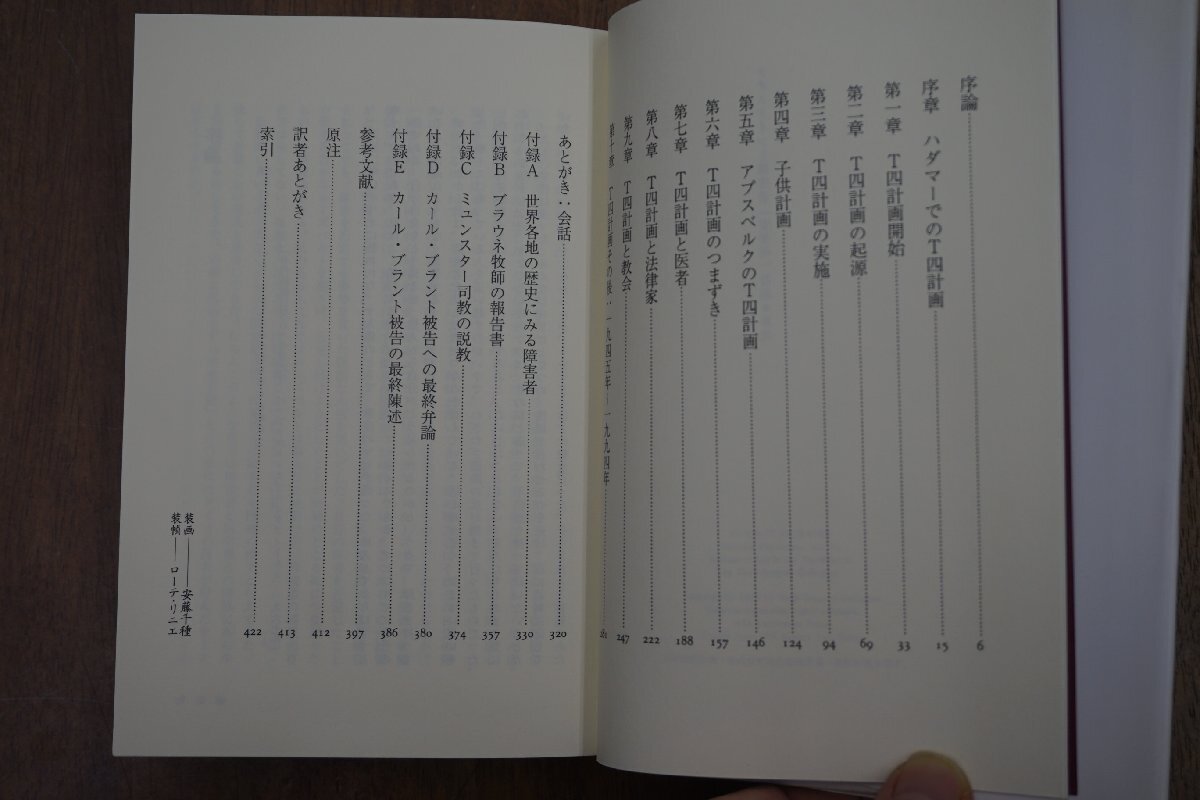 序論 6
序章 ハダマーでのT四計画 15
第一章 T四計画開始 33
第二章 T四計画の起源 69
第三章 T四計画の実施 94
第四章 子供計画 124
第五章 アブスベルクのT四計画 146
第六章 T四計画のつまずき 157
第七章 T四計画と医者 188
第八章 T四計画と法律家 222
第九章 T四計画と教会 247
第十章 T四計画その後:一九四五年–一九九四年
あとがき:会話 320
付録A 世界各地の歴史にみる障害者 330
付録B ブラウネ牧師の報告書 357
付録C ミュンスター司教の説教 374
付録D カール・ブラント被告への最終弁論 380
付録E カール・ブラント被告の最終陳述 386
参考文献 397
原注 412
訳者あとがき 413
索引 422
装画——安藤千種
装幀——ローテ・リニエ